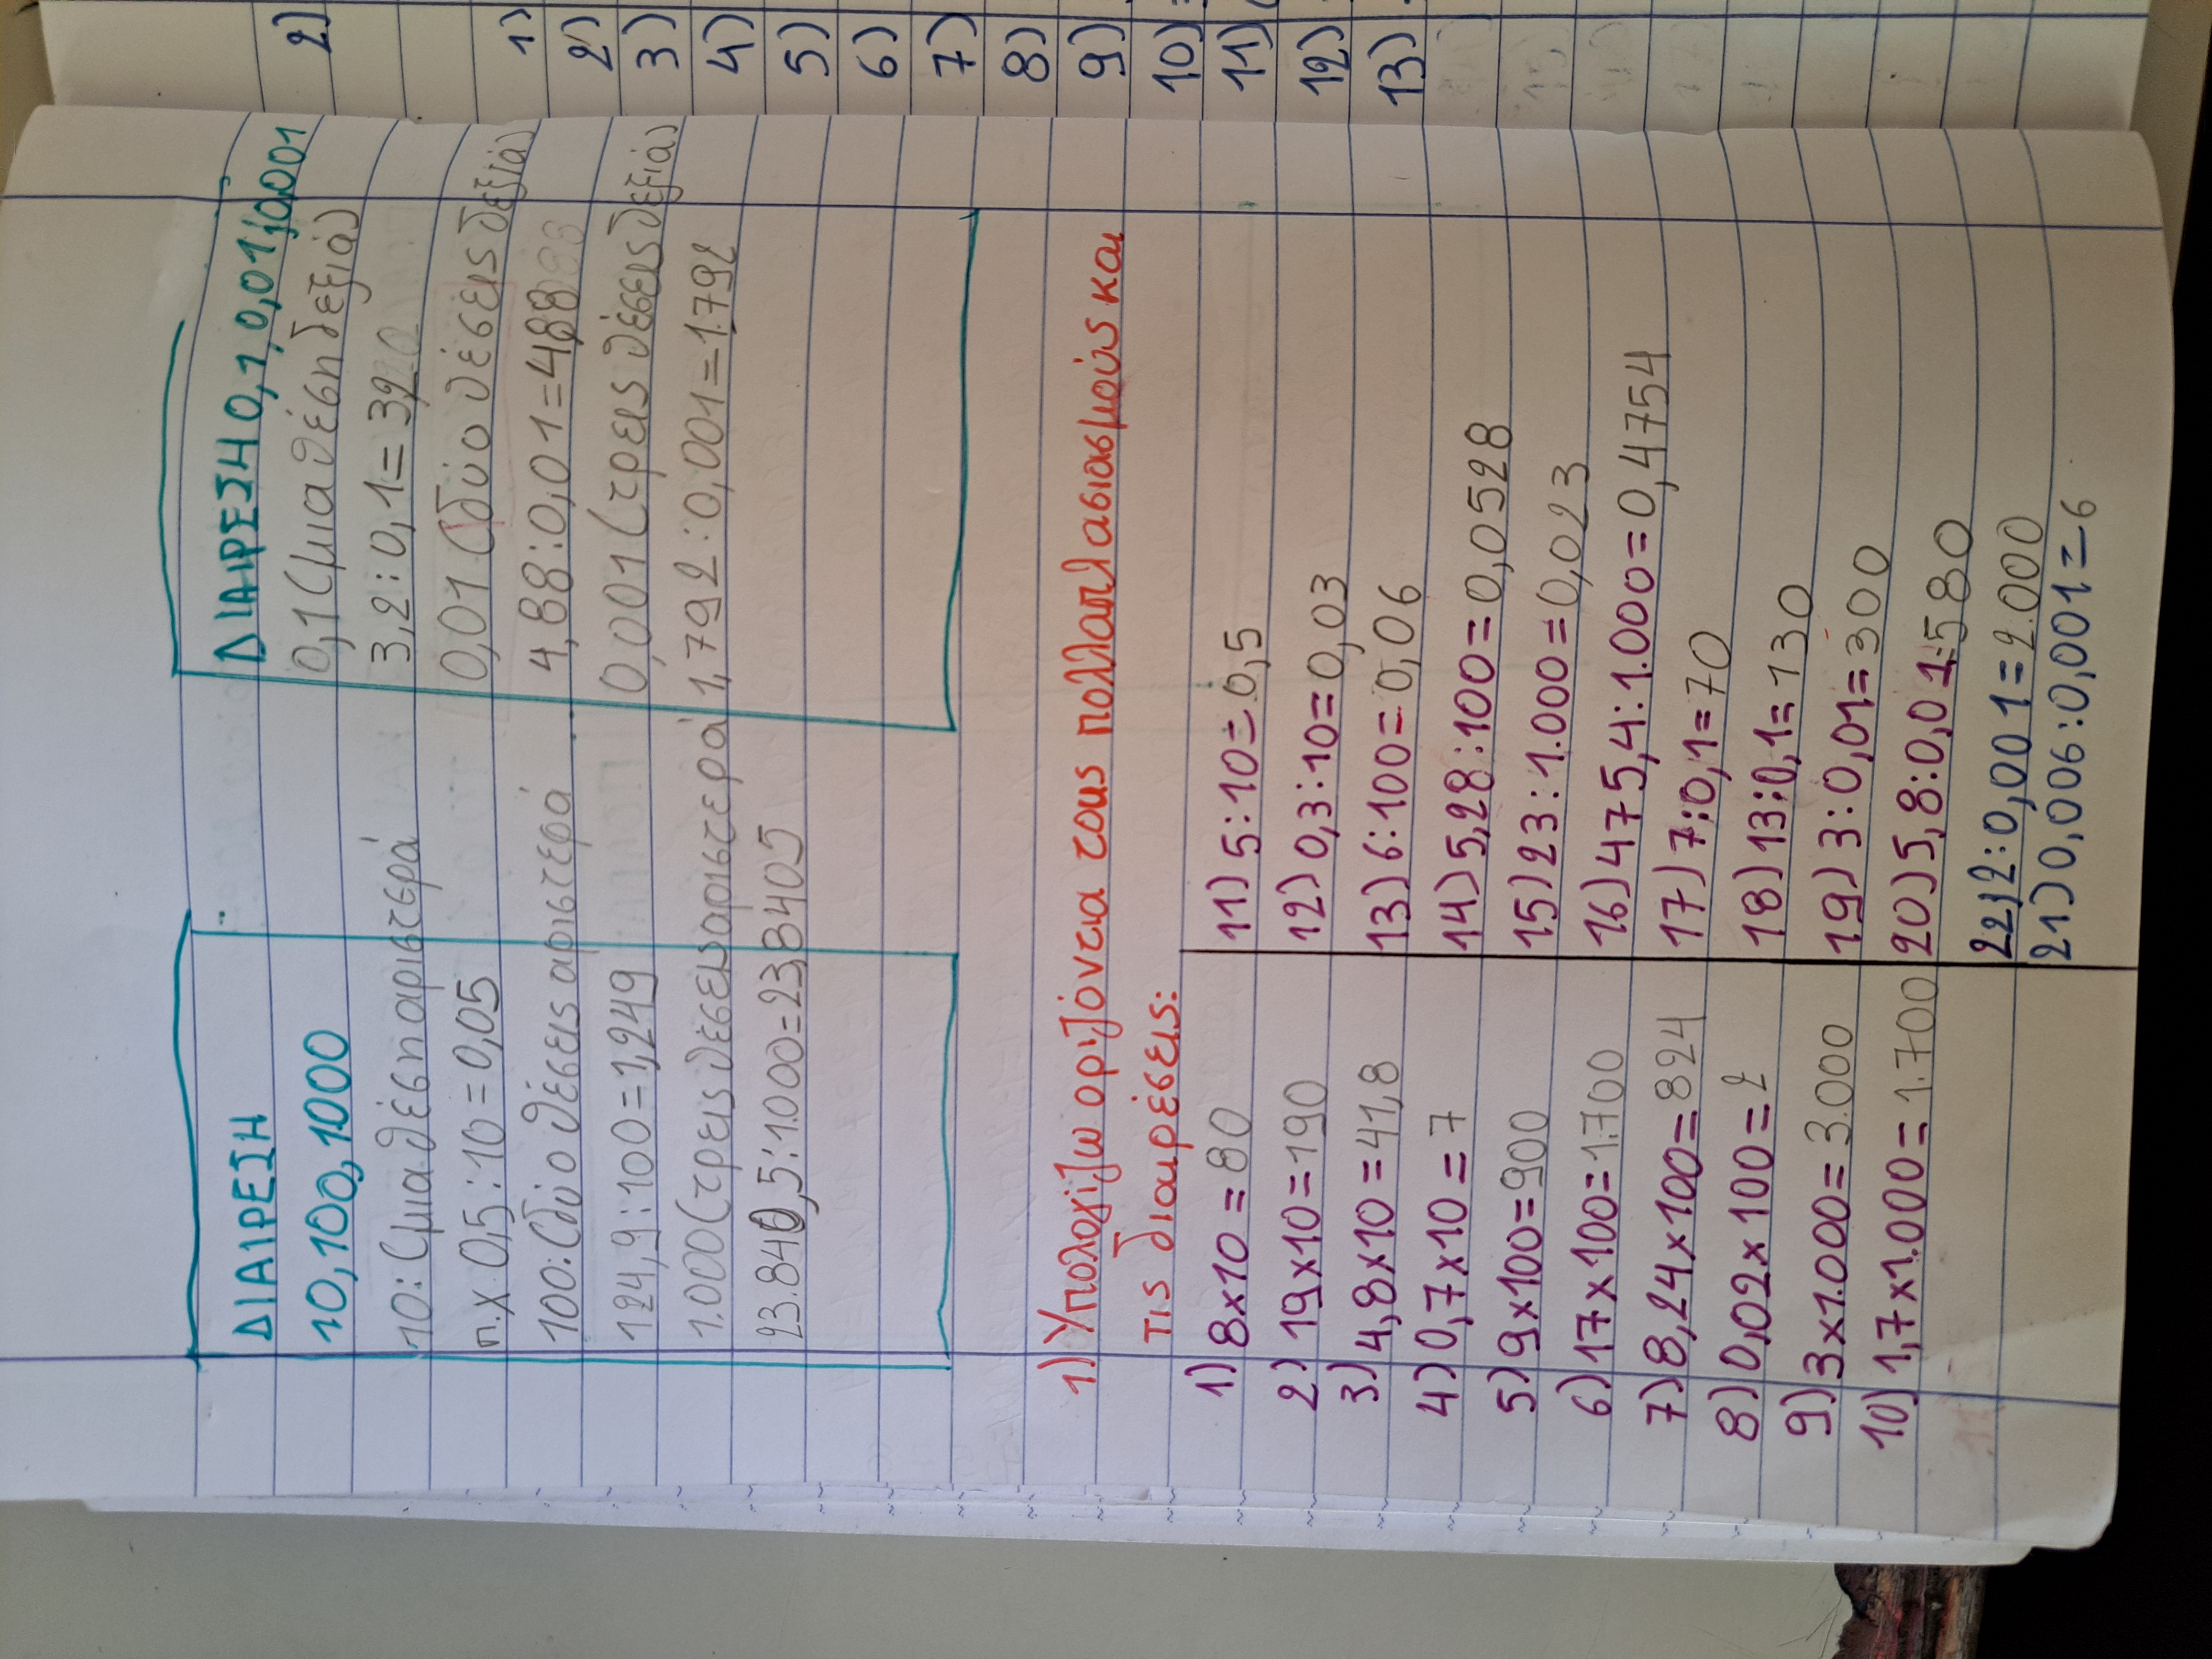 ΔΙΑΙΡΕΣΗ
10, 100, 1000
10: (μια θέση αριστερά
π.χ 0,5:10=0,05
100: (δύο θέσεις αριστερά
124,9:100=1,249
1.000 (τρεις θέσεις αριστερά
23.840,5:1.000=23,8405
ΔΙΑΙΡΕΣΗ 0,1, 0,01, 0,001
0,1 (μια θέση δεξιά)
3,2:0,1=32
0,01 (δύο θέσεις δεξιά)
4,88:0,01=488
0,001 (τρεις θέσεις δεξιά)
1,792:0,001=1.792
1) Υπολογίζω οριζόντια τους πολλαπλασιασμούς και
τις διαιρέσεις:
1) 8x10=80
2) 19x10=190
3) 4,8x10=41,8
4) 0,7x10=7
5) 9x100=900
6) 17x100=1.700
7) 8,24x100=824
8) 0,02x100=2
9) 3x1.000=3.000
10) 1,7x1.000=1.700
11) 5:10=0,5
12) 0,3:10=0,03
13) 6:100=0,06
14) 5,28:100=0,0528
15) 23:1.000=0,023
16) 475,4:1.000=0,4754
17) 7:0,1=70
18) 13:0,1=130
19) 3:0,01=300
20) 5,8:0,01=580
22) 2:0,001=2.000
21) 0,006:0,001=6
2)
1)
2)
3)
4)
5)
6)
7)
8)
9)
10)
11)
12)
13)